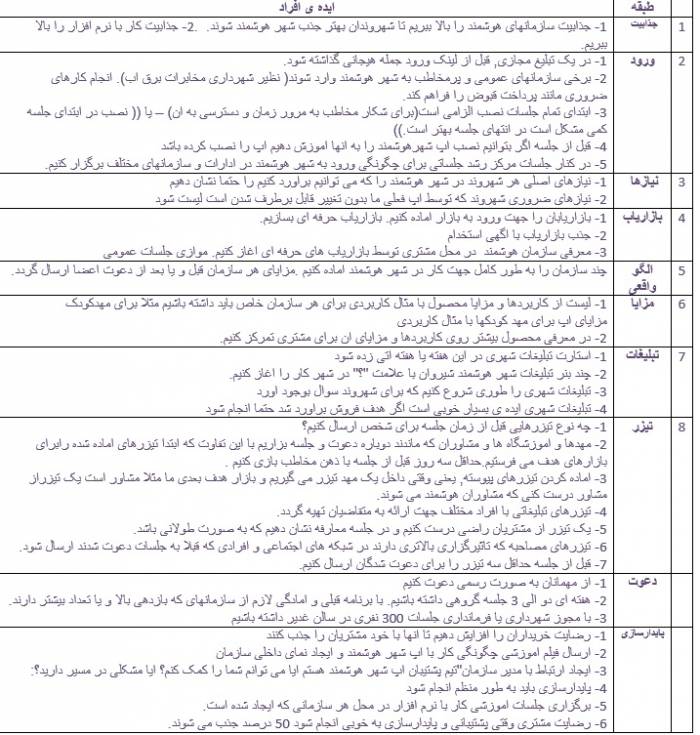 طبقه ایده ی افراد
1 جذابیت 1- جذابیت سازمانهای هوشمند را بالا ببریم تا شهروندان بهتر جذب شهر هوشمند شوند. .2- جذابیت کار با نرم افزار را بالا
ببریم.
2 ورود 1- در یک تبلیغ مجازی, قبل از لینک ورود جمله هیجانی گذاشته شود.
2- برخی سازمانهای عمومی و پرمخاطب به شهر هوشمند وارد شوند( نظیر شهرداری مخابرات برق اب). انجام کارهای
ضروری مانند پرداخت قبوض را فراهم کند.
3- ابتدای تمام جلسات نصب الزامی است(برای شکار مخاطب به مرور زمان و دسترسی به ان) – یا (( نصب در ابتدای جلسه
کمی مشکل است در انتهای جلسه بهتر است.))
4- قبل از جلسه اگر بتوانیم نصب اپ شهرهوشمند را به انها اموزش دهیم اپ را نصب کرده باشد
5- در کنار جلسات مرکز رشد جلساتی برای چگونگی ورود به شهر هوشمند در ادارات و سازمانهای مختلف برگزار کنیم.
3 نیازها 1- نیازهای اصلی هر شهروند در شهر هوشمند را که می توانیم براورد کنیم را حتما نشان دهیم
2- نیازهای ضروری شهروند که توسط اپ فعلی ما بدون تغییر قابل برطرف شدن است لیست شود
4 بازاریاب 1- بازاریابان را جهت ورود به بازار اماده کنیم. بازاریاب حرفه ای بسازیم.
2- جذب بازاریاب با اگهی استخدام
3- معرفی سازمان هوشمند در محل مشتری توسط بازاریاب های حرفه ای اغاز کنیم. موازی جلسات عمومی
5 الگو چند سازمان را به طور کامل جهت کار در شهر هوشمند اماده کنیم .مزایای هر سازمان قبل و یا بعد از دعوت اعضا ارسال گردد.
واقعی
6 مزایا 1- لیست از کاربردها و مزایا محصول با مثال کاربردی برای هر سازمان خاص باید داشته باشیم مثلا برای مهدکودک
مزایای اپ برای مهد کودکها با مثال کاربردی
2- در معرفی محصول بیشتر روی کاربردها و مزایای ان برای مشتری تمرکز کنیم.
7 تبلیغات 1- استارت تبلیغات شهری در این هفته یا هفته اتی زده شود
2- چند بنر تبلیغات شهر هوشمند شیروان با علامت "؟" در شهر کار را اغاز کنیم.
3- تبلیغات شهری را طوری شروع کنیم که برای شهروند سوال بوجود اورد
4- تبلیغات شهری ایده ی بسیار خوبی است اگر هدف فروش براورد شد حتما انجام شود
8 تیزر 1- چه نوع تیزرهایی قبل از زمان جلسه برای شخص ارسال کنیم؟
2- مهدها و اموزشگاه ها و مشاوران که ماندند دوباره دعوت و جلسه بزاریم با این تفاوت که ابتدا تیزرهای اماده شده رابرای
بازارهای هدف می فرستیم.حداقل سه روز قبل از جلسه با ذهن مخاطب بازی کنیم .
3- اماده کردن تیزرهای پیوسته, یعنی وقتی داخل یک مهد تیزر می گیریم و بازار هدف بعدی ما مثلا مشاور است یک تیزراز
مشاور درست کنی که مشاوران هوشمند می شوند.
4- تیزرهای تبلیغاتی با افراد مختلف جهت ارائه به متقاضیان تهیه گردد.
5- یک تیزر از مشتریان راضی درست کنیم و در جلسه معارفه نشان دهیم که به صورت طولانی باشد.
6- تیزرهای مصاحبه که تاثیرگزاری بالاتری دارند در شبکه های اجتماعی و افرادی که قبلا به جلسات دعوت شدند ارسال شود.
7- قبل از جلسه حداقل سه تیزر را برای دعوت شدگان ارسال کنیم.
دعوت 1- از مهمانان به صورت رسمی دعوت کنیم
2- هفته ای دو الی 3 جلسه گروهی داشته باشیم. با برنامه قبلی و امادگی لازم از سازمانهای که بازدهی بالا و یا تعداد بیشتر دارند.
3- با مجوز شهرداری یا فرمانداری جلسات 300 نفری در سالن غدیر داشته باشیم
پایدارسازی 1- رضایت خریداران را افزایش دهیم تا انها با خود مشتریان را جذب کنند
2- ارسال فیلم اموزشی چگونگی کار با اپ شهر هوشمند و ایجاد نمای داخلی سازمان
3- ایجاد ارتباط با مدیر سازمان"تیم پشتیبان اپ شهر هوشمند هستم ایا می توانم شما را کمک کنم؟ ایا مشکلی در مسیر دارید؟:
4- پایدارسازی باید به طور منظم انجام شود
5- برگزاری جلسات اموزشی کار با نرم افزار در محل هر سازمانی که ایجاد شده است.
6- رضایت مشتری وقتی پشتیبانی و پایدارسازی به خوبی انجام شود 50 درصد جذب می شوند.